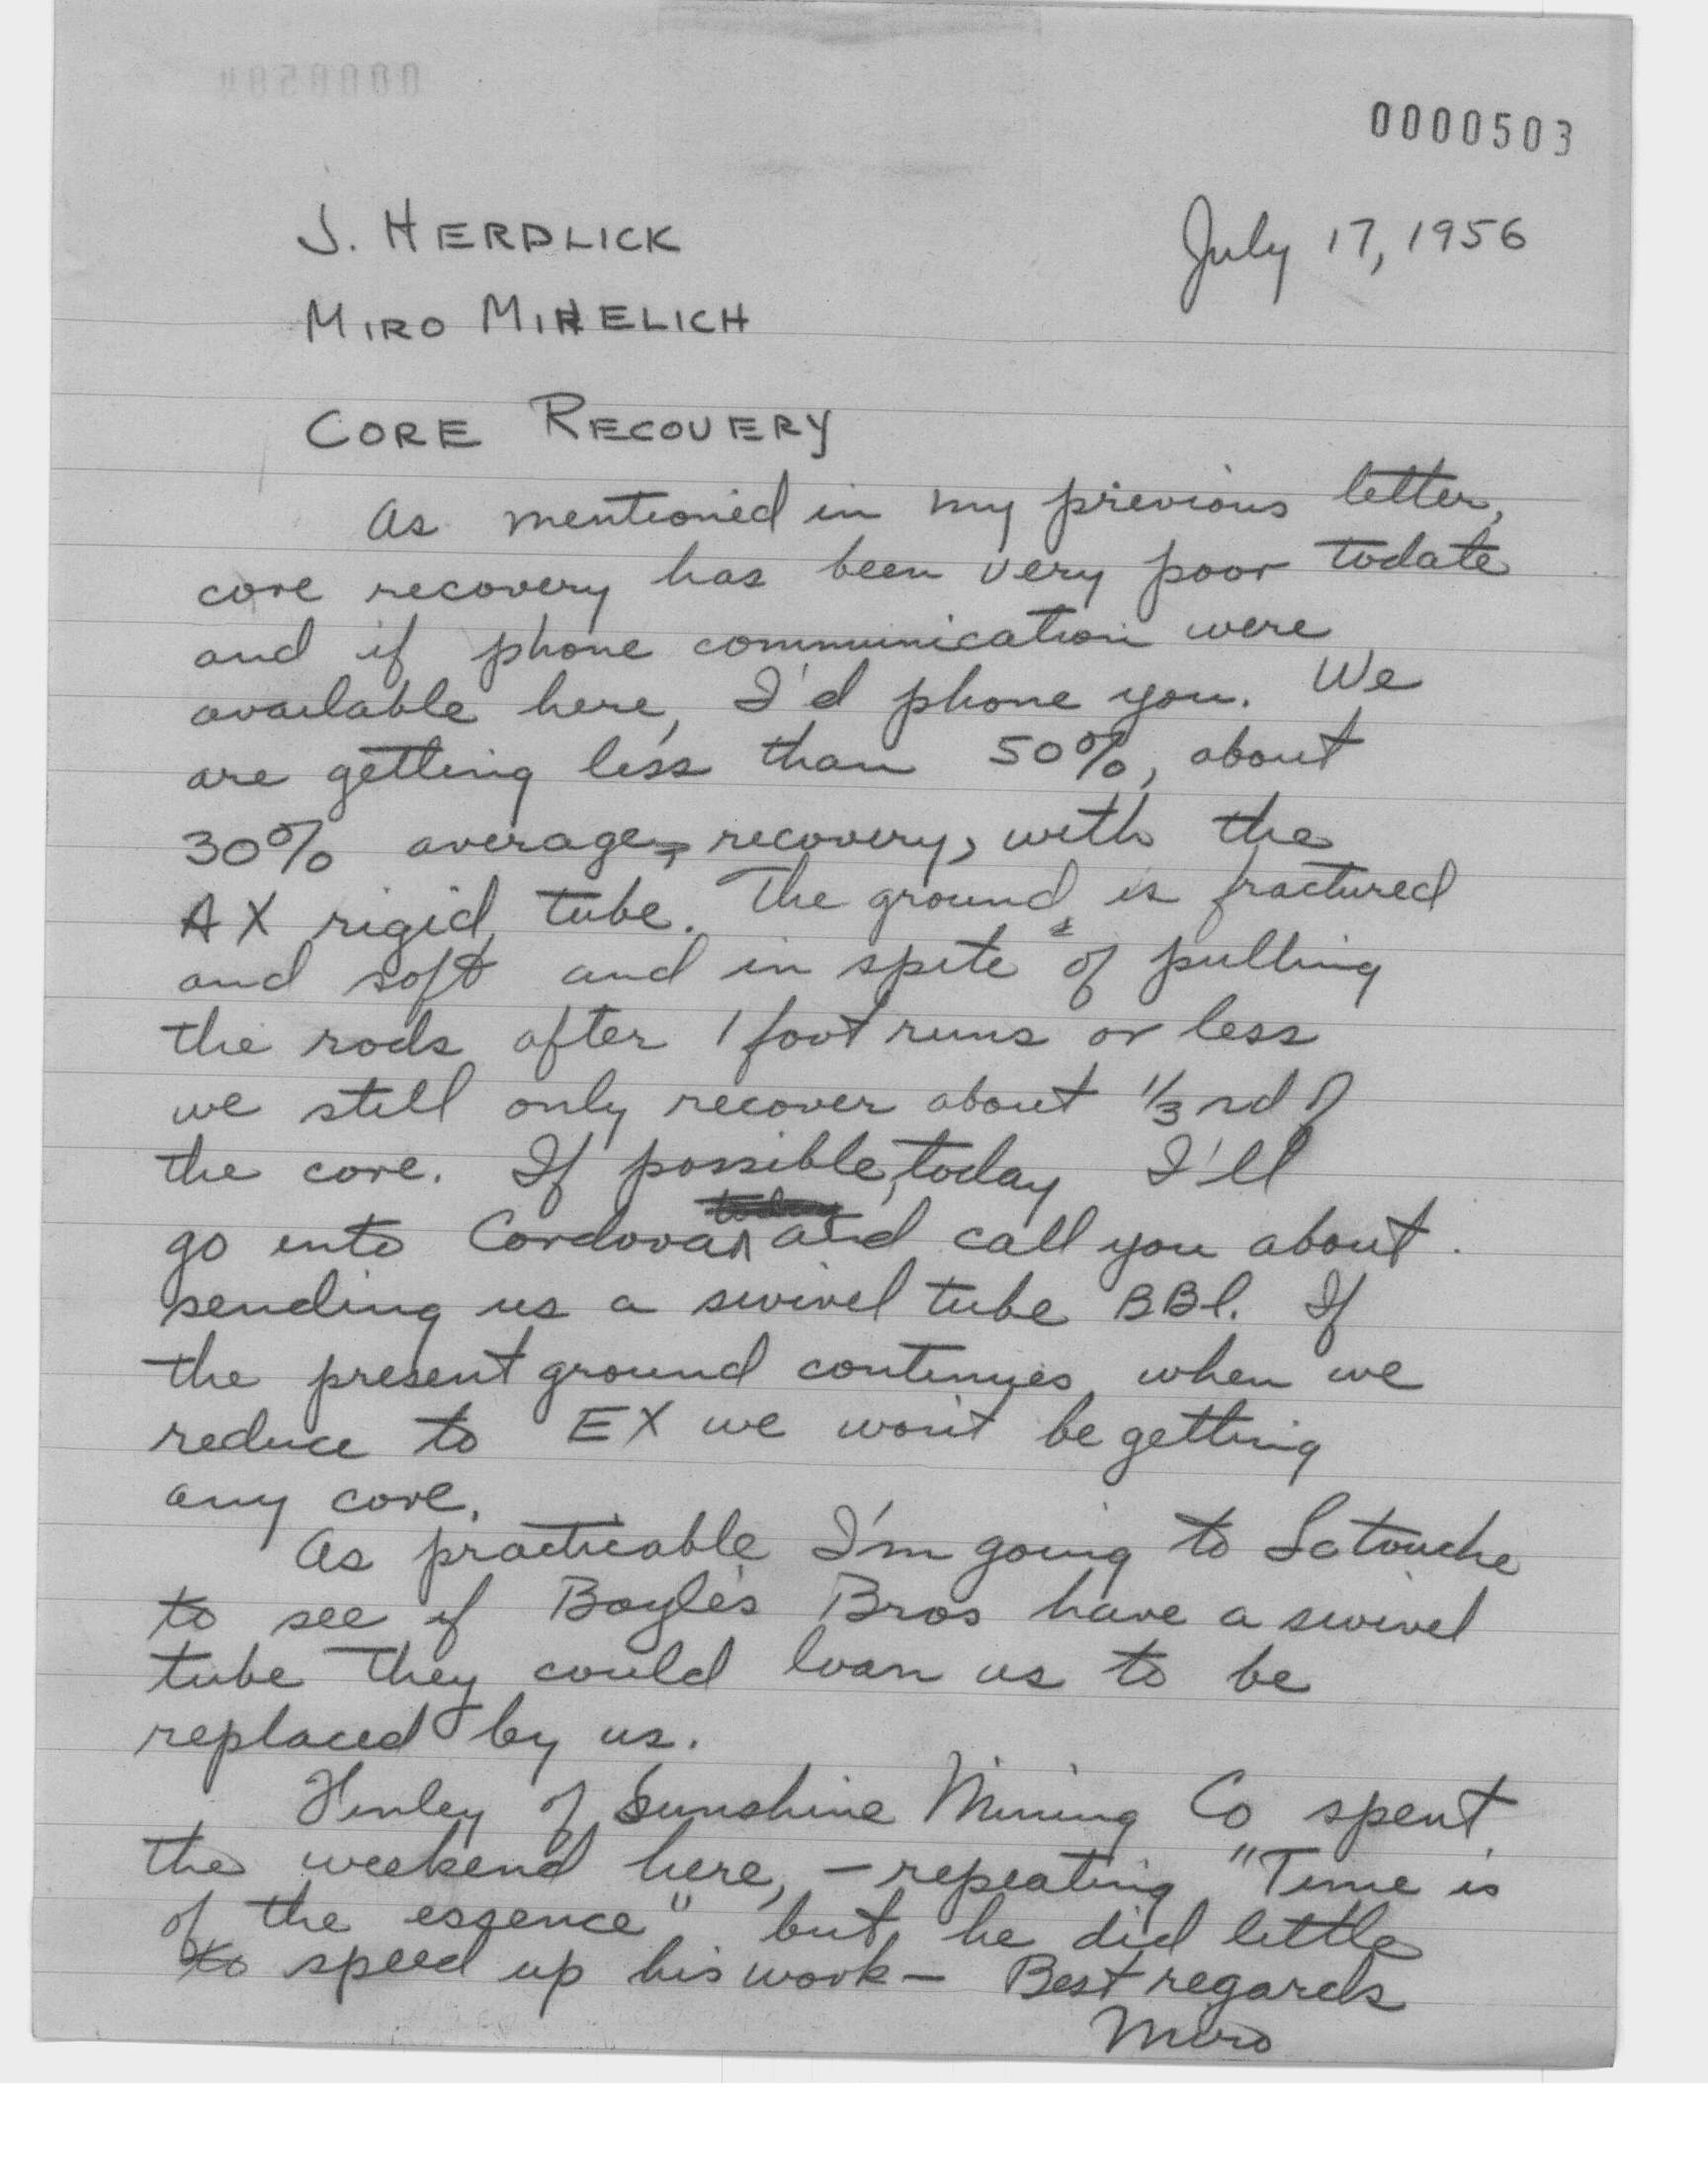 0000503
J. HERDLICK
July 17, 1956
MIRO MIHELICH
CORE RECOVERY
As mentioned in my previous letter,
core recovery has been very poor todate
and if phone communication were
available here, I'd phone you. We
are getting less than 50%, about
30% average, recovery, with the
AX rigid tube. The ground is fractured
and soft and in spite of pulling
the rods after 1 foot runs or less
we still only recover about 1/3 rd of
the core. If possible, today I'll
go into Cordova and call you about
sending us a swivel tube BBl. If
the present ground continues, when we
reduce to EX we won't be getting
any core.
As practicable I'm going to Latouche
to see if Boyles Bros have a swivel
tube they could loan us to be
replaced by us.
Henley of Sunshine Mining Co spent
the weekend here, – repeating "Time is
of the essence" but he did little
to speed up his work – Best regards
Miro